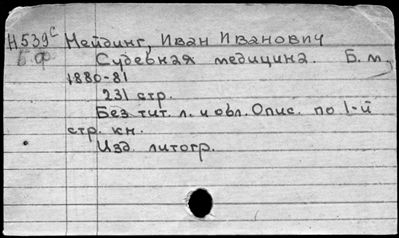 Н539с Мейдинг, Иван Иванович
Б.ф. Судебная медицина. Б. м.,
1880-81
231 стр.
Без тит. л. и обл. Опис. по 1-й
стр. кн.
Изд. литогр.